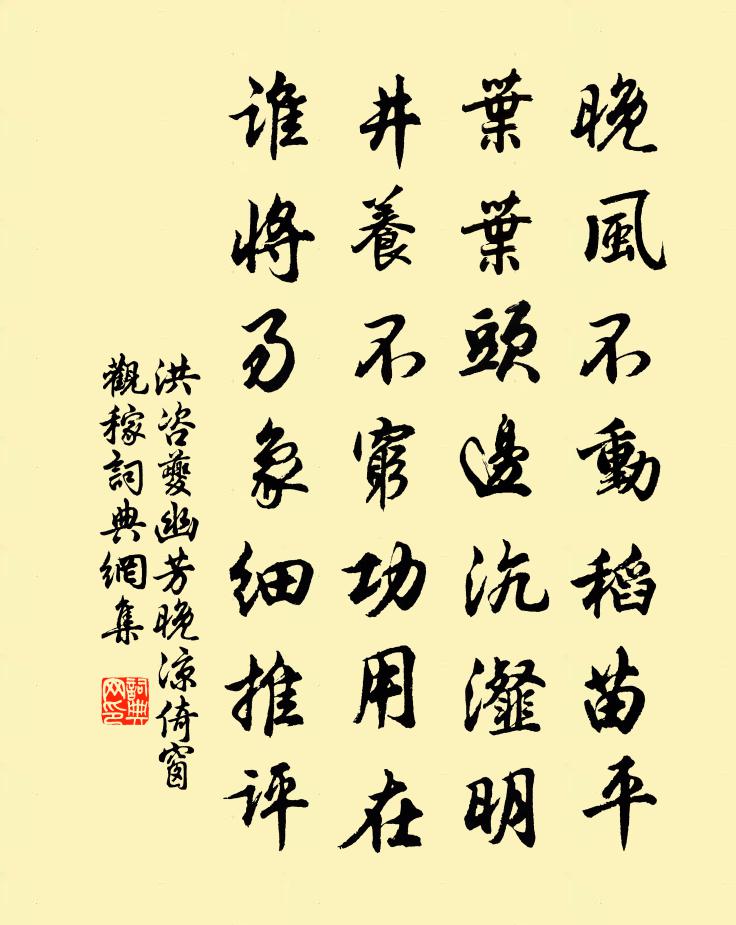 晚風不動稻苗平
葉葉頭邊沆瀣明
井養不窮功用在
誰將易象細推評
洪咨夔幽芳晚涼倚窗
觀稼詞典網集
詞典
网印